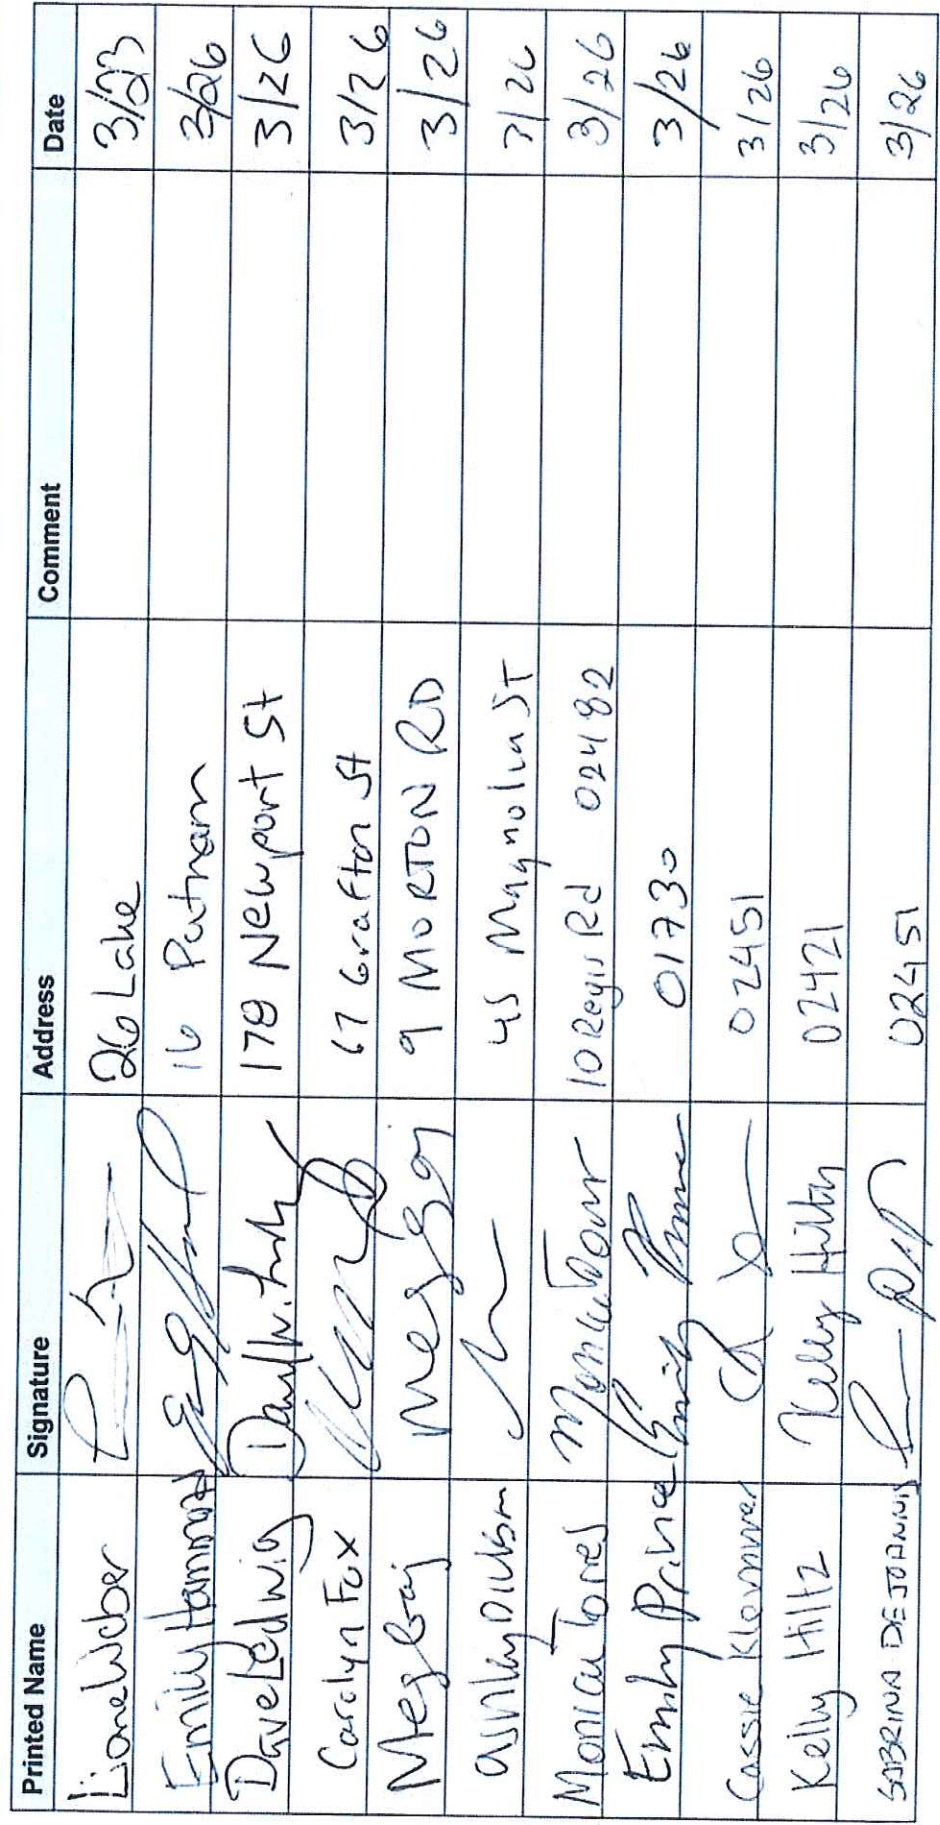 Printed Name Signature Address Comment Date
Liane Weber 26 Lake 3/23
Emily Hammond 16 Putnam 3/26
Dave Ledwig 178 Newport St 3/26
Carolyn Fox 67 Grafton St 3/26
Meg Gaj Meg Gaj 9 MORTON RD 3/26
Ashley Dickson 45 Magnolia ST 3/26
Monica Torres 10 Regis Rd 02482 3/26
Emily Prince Emily Prince 01730 3/26
Cassie 02451 3/26
Kelly Hiltz Kelly Hiltz 02421 3/26
SABRINA DEJOANNIS 02451 3/26